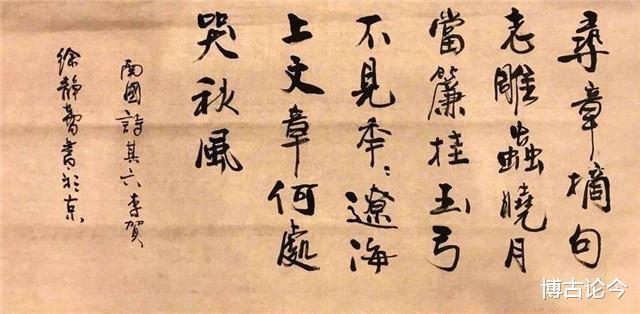 尋章摘句
老雕蟲曉月
當簾挂玉弓
不見年〻遼海
上文章何處
哭秋風
南國詩其六李賀
徐静蕾書於京
博古论今